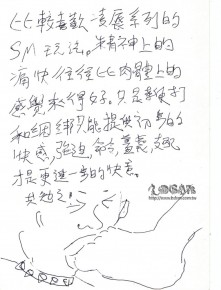 比較喜歡凌辱系列的
SM玩法。精神上的
痛快往往比肉體上的
感覺來得好。只是鞭打
和綑綁只能提供初步的
快感，強迫、命令、羞辱、支配
才是更進一步的快意。
共勉之！
http://www.bdsm.com.tw